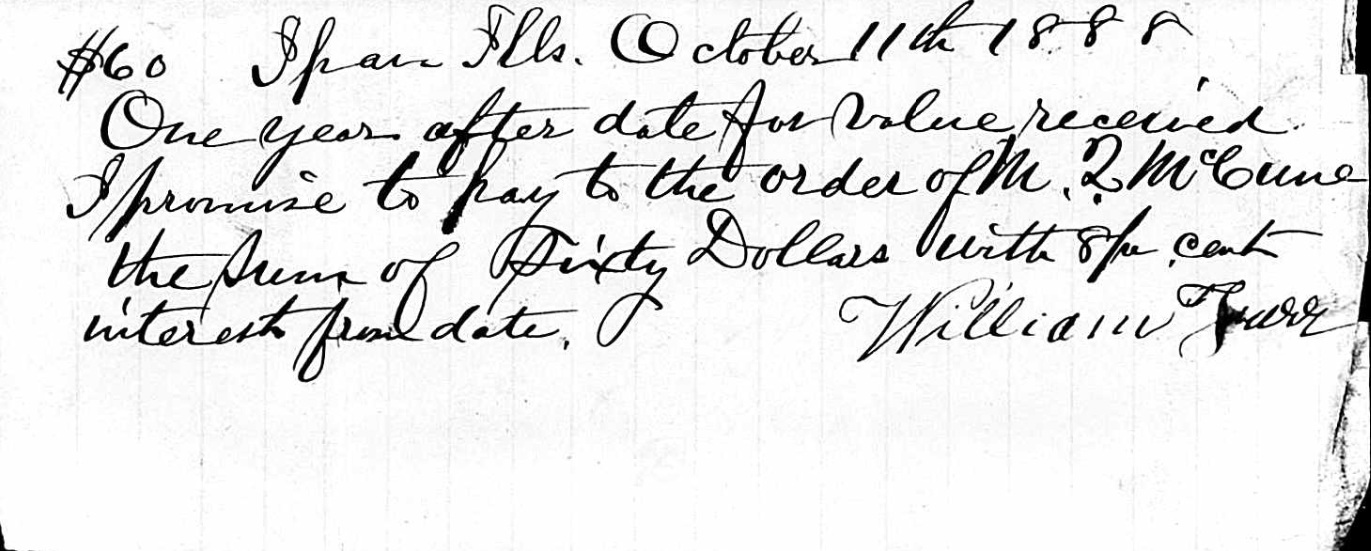 $60 Ipava Ills. October 11th 1888
One year after date for value received
I promise to pay to the order of M. Q McCune
the Sum of Sixty Dollars with 8 per cent
interest from date. William